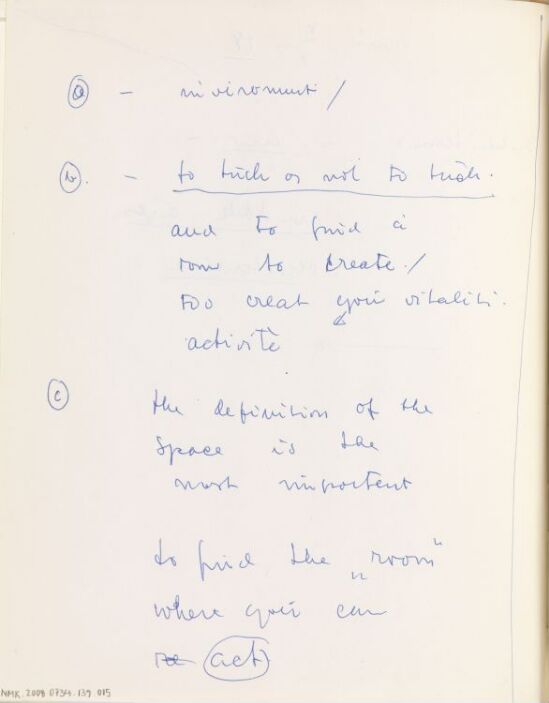 (a) - inviroment /
(b). - to tuch or not to tuch.
and to find a
room to create. /
too creat your vitaliti.
activitè
(c)
the definition of the
space is the
most importent
to find the „room"
where you can
act
NMK.2008.0734.139.015